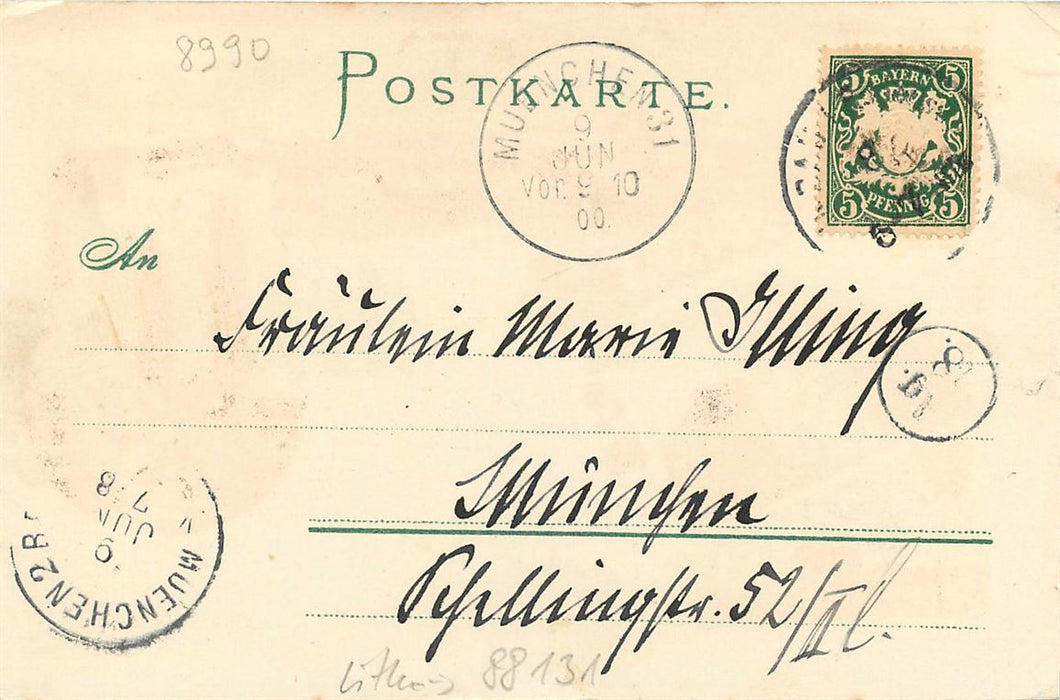 8990
POSTKARTE.
MUENCHEN 31
9
JUN
Vor. 9-10
00.
BAYERN
5 5
PFENNIG
5 5
An
Fräulein Marie Illing
München
Schellingstr. 52/II l.
MUENCHEN 2 B
9
JUN
7-8
Litho 88131